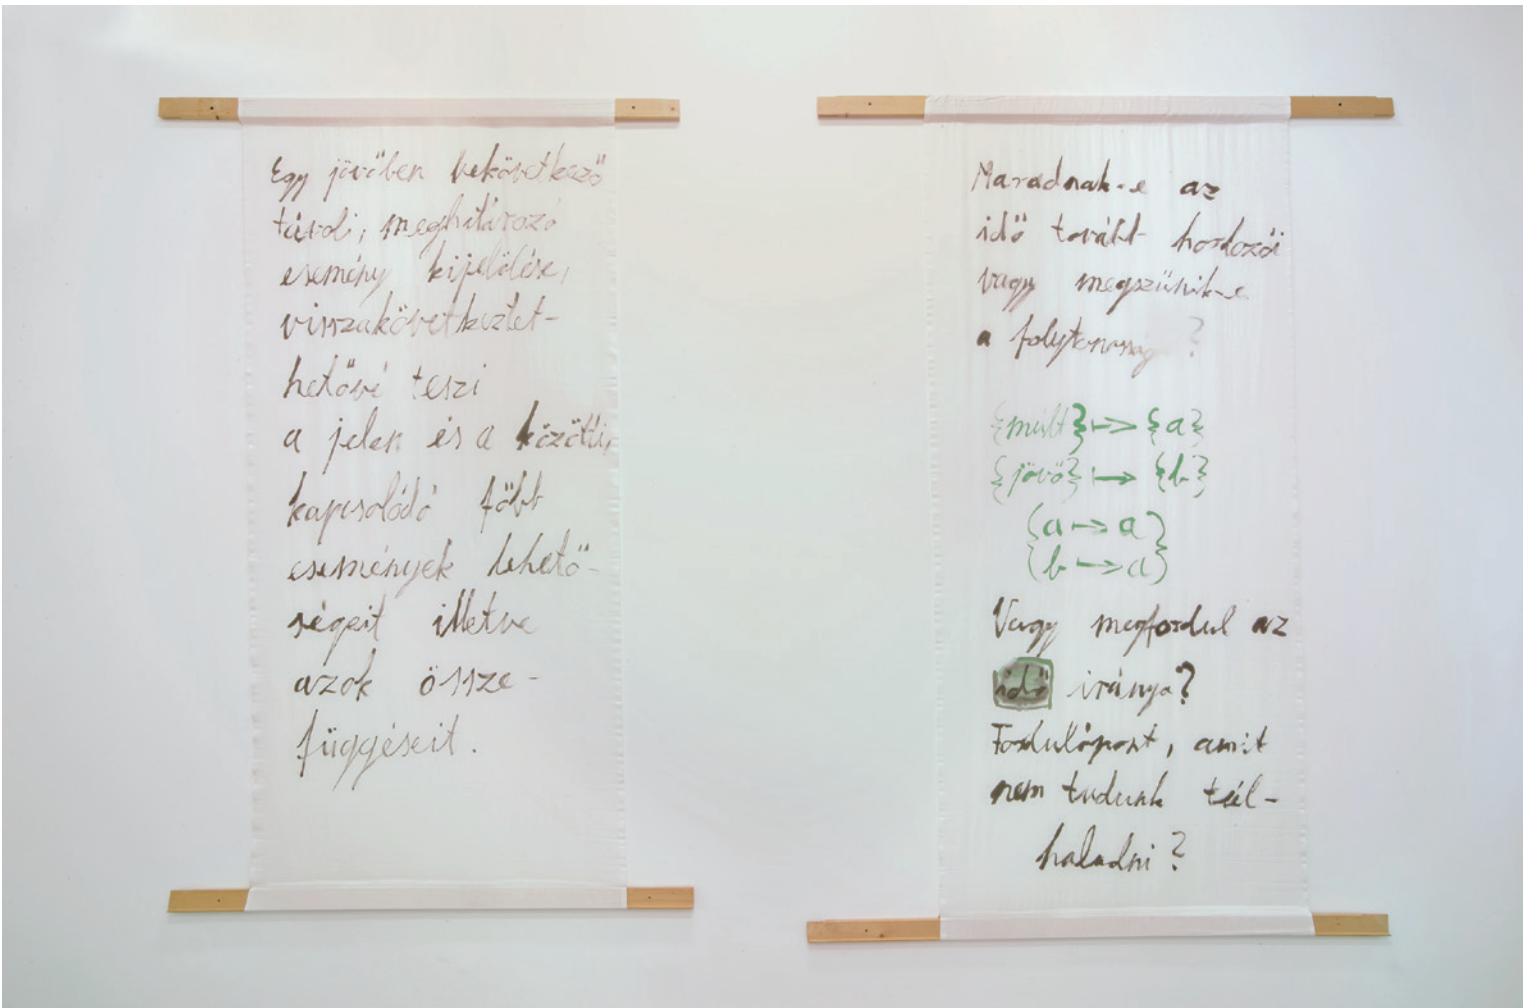 Egy jövőben bekövetkező
távoli, meghatározó
esemény kijelölése,
visszakövetkeztet-
hetővé teszi
a jelen és a közötti,
kapcsolódó főbb
események lehető-
ségeit illetve
azok össze-
függéseit.
Maradnak-e az
idő tovább hordozói
vagy megszűnik-e
a folytonosság?
{múlt} ↦ {a}
{jövő} ↦ {b}
{a ↦ a}
{b ↦ a}
Vagy megfordul az
idő iránya?
Fordulópont, amit
nem tudunk túl-
haladni?